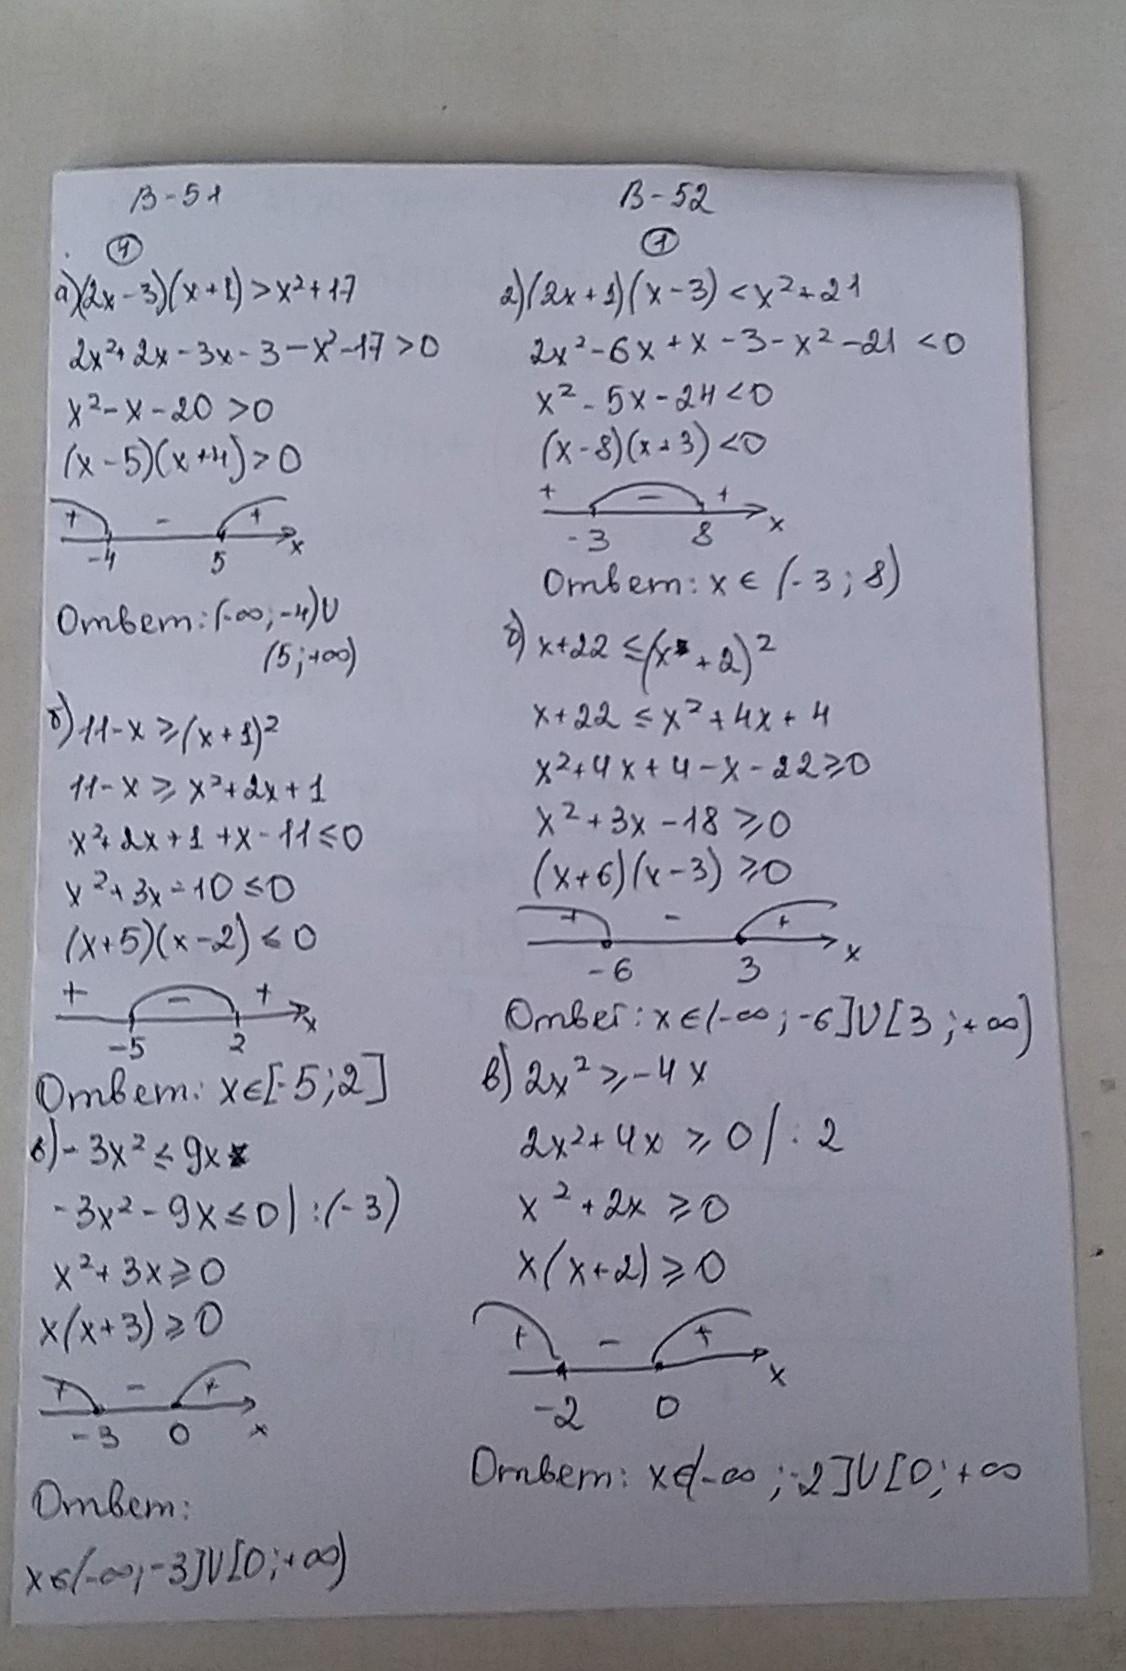 В-51
①
а) (2x-3)(x+1)>x²+17
2x²+2x-3x-3-x²-17>0
x²-x-20>0
(x-5)(x+4)>0
+ - +
-4 5 x
Ответ: (-∞;-4)∪
(5;+∞)
б) 11-x≥(x+1)²
11-x≥x²+2x+1
x²+2x+1+x-11≤0
x²+3x-10≤0
(x+5)(x-2)≤0
+ - +
-5 2 x
Ответ: x∈[-5;2]
в) -3x²≤9x
-3x²-9x≤0|:(-3)
x²+3x≥0
x(x+3)≥0
+ - +
-3 0 x
Ответ:
x∈(-∞;-3]∪[0;+∞)
В-52
①
а) (2x+1)(x-3)<x²+21
2x²-6x+x-3-x²-21<0
x²-5x-24<0
(x-8)(x+3)<0
+ - +
-3 8 x
Ответ: x∈(-3;8)
б) x+22≤(x+2)²
x+22≤x²+4x+4
x²+4x+4-x-22≥0
x²+3x-18≥0
(x+6)(x-3)≥0
+ - +
-6 3 x
Ответ: x∈(-∞;-6]∪[3;+∞)
в) 2x²≥-4x
2x²+4x≥0|:2
x²+2x≥0
x(x+2)≥0
+ - +
-2 0 x
Ответ: x∈(-∞;-2]∪[0;+∞